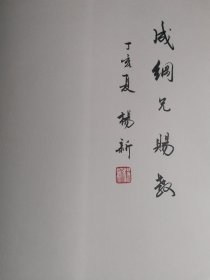 成纲兄赐教
丁亥夏 杨新